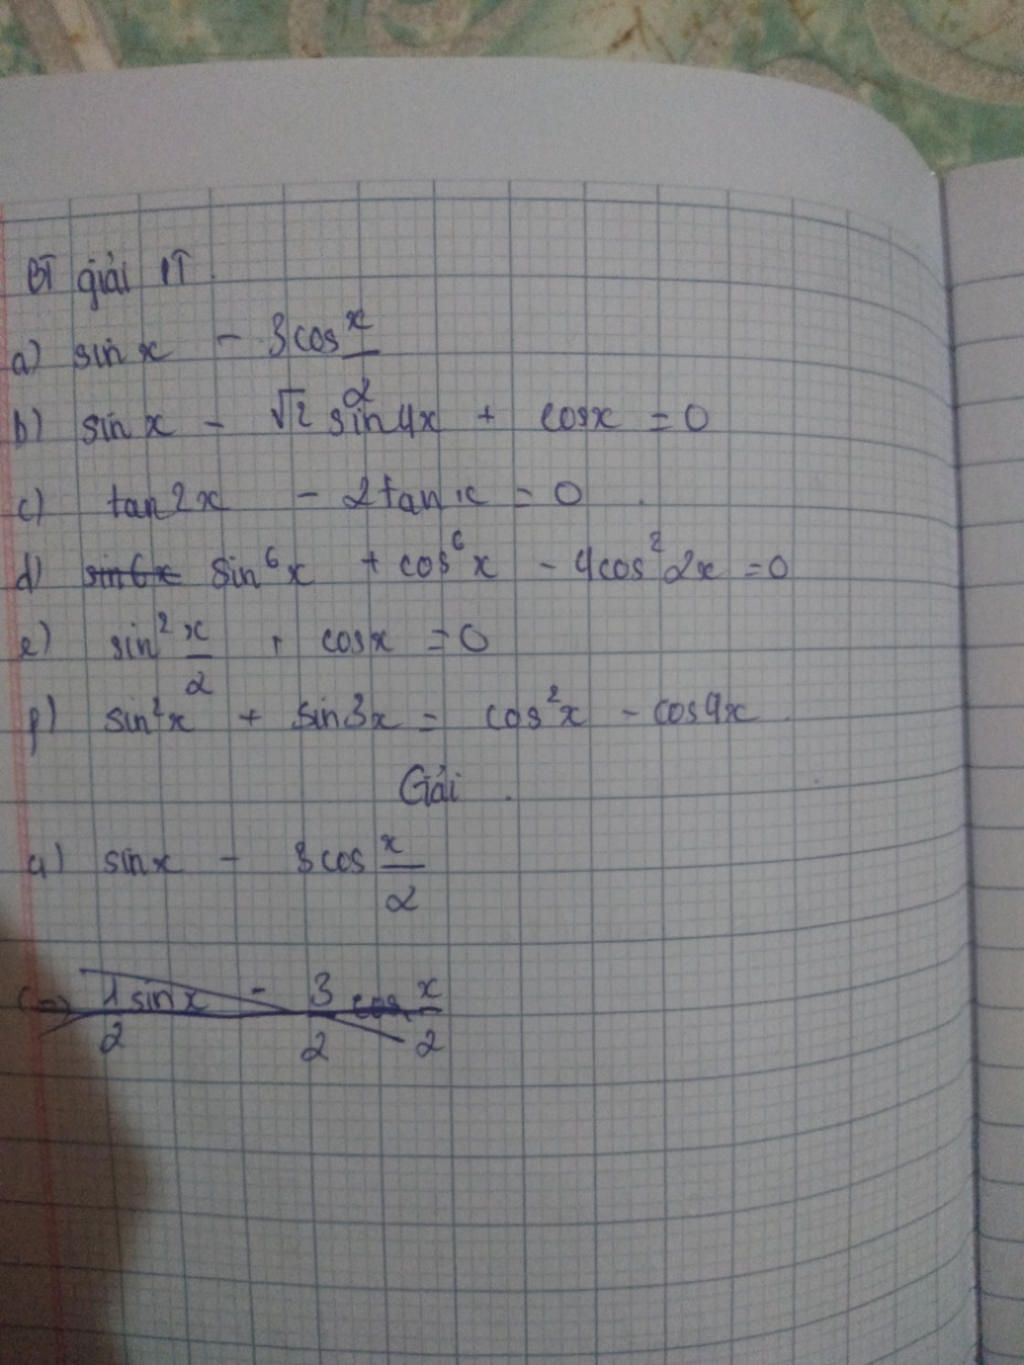 BT giải PT.
a) sin x - 3cos x/2
b) sin x - √2 sin4x + cosx = 0
c) tan2x - 2tan x = 0.
d) ~~sin6x~~ sin⁶x + cos⁶x - 4cos²2x = 0
e) sin² x/2 + cosx = 0
f) sin²x + sin3x = cos²x - cos4x.
Giải.
a) sinx - 3cos x/2
~~(=) 1/2 sinx - 3/2 cos x/2~~